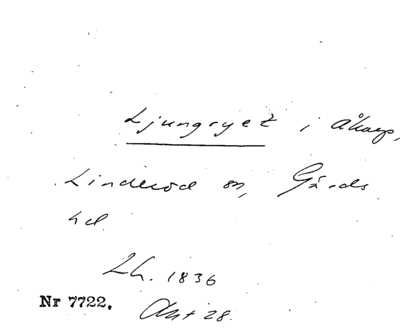 Ljungryet i Åkarp,
Linderöd sn, Gärds
hd.
Lh. 1836
Nr 7722. Akt 28.